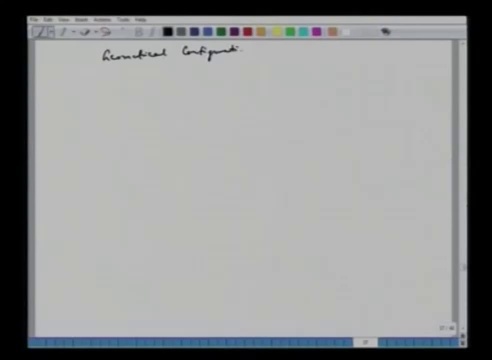 File Edit View Insert Actions Tools Help
Geometrical Configurati